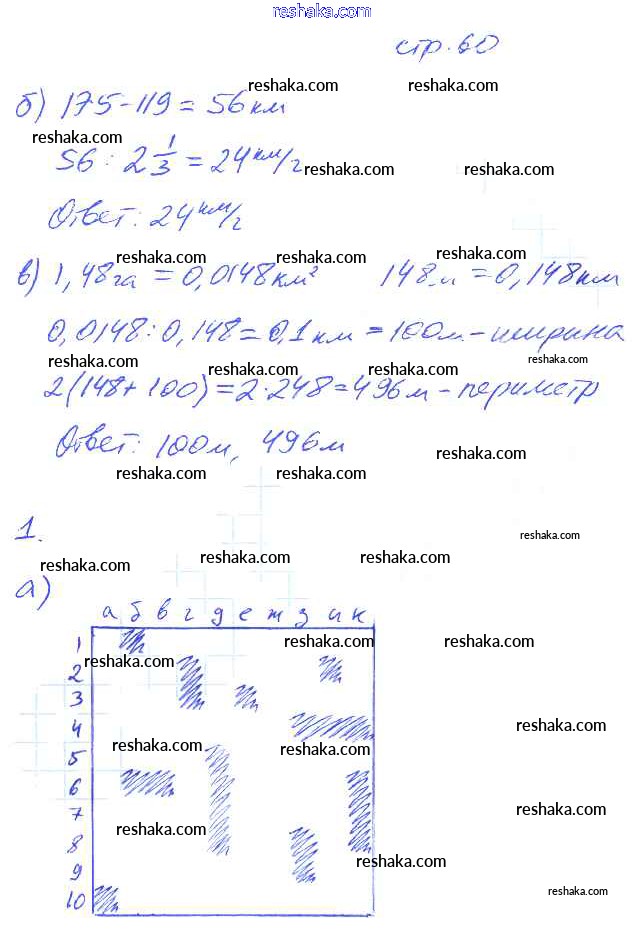 reshaka.com
стр. 60
reshaka.com reshaka.com
б) 175 - 119 = 56 км
reshaka.com
56 : 2 1/3 = 24 км/ч
reshaka.com reshaka.com
Ответ: 24 км/ч
reshaka.com reshaka.com reshaka.com
в) 1,48 га = 0,0148 км² 148 м = 0,148 км
0,0148 : 0,148 = 0,1 км = 100 м - ширина
reshaka.com reshaka.com reshaka.com
2(148 + 100) = 2 · 248 = 496 м - периметр
Ответ: 100 м, 496 м
reshaka.com
reshaka.com reshaka.com
1.
reshaka.com
reshaka.com reshaka.com reshaka.com
а)
а б в г д е ж з и к
1
reshaka.com reshaka.com
2
reshaka.com
3
4
reshaka.com
5
reshaka.com reshaka.com
6
7
reshaka.com
8
reshaka.com
reshaka.com
9
10
reshaka.com